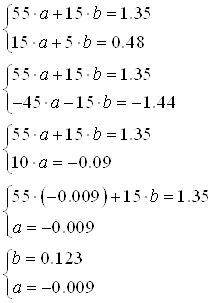 55·a+15·b=1.35
15·a+5·b=0.48
55·a+15·b=1.35
−45·a−15·b=−1.44
55·a+15·b=1.35
10·a=−0.09
55·(−0.009)+15·b=1.35
a=−0.009
b=0.123
a=−0.009